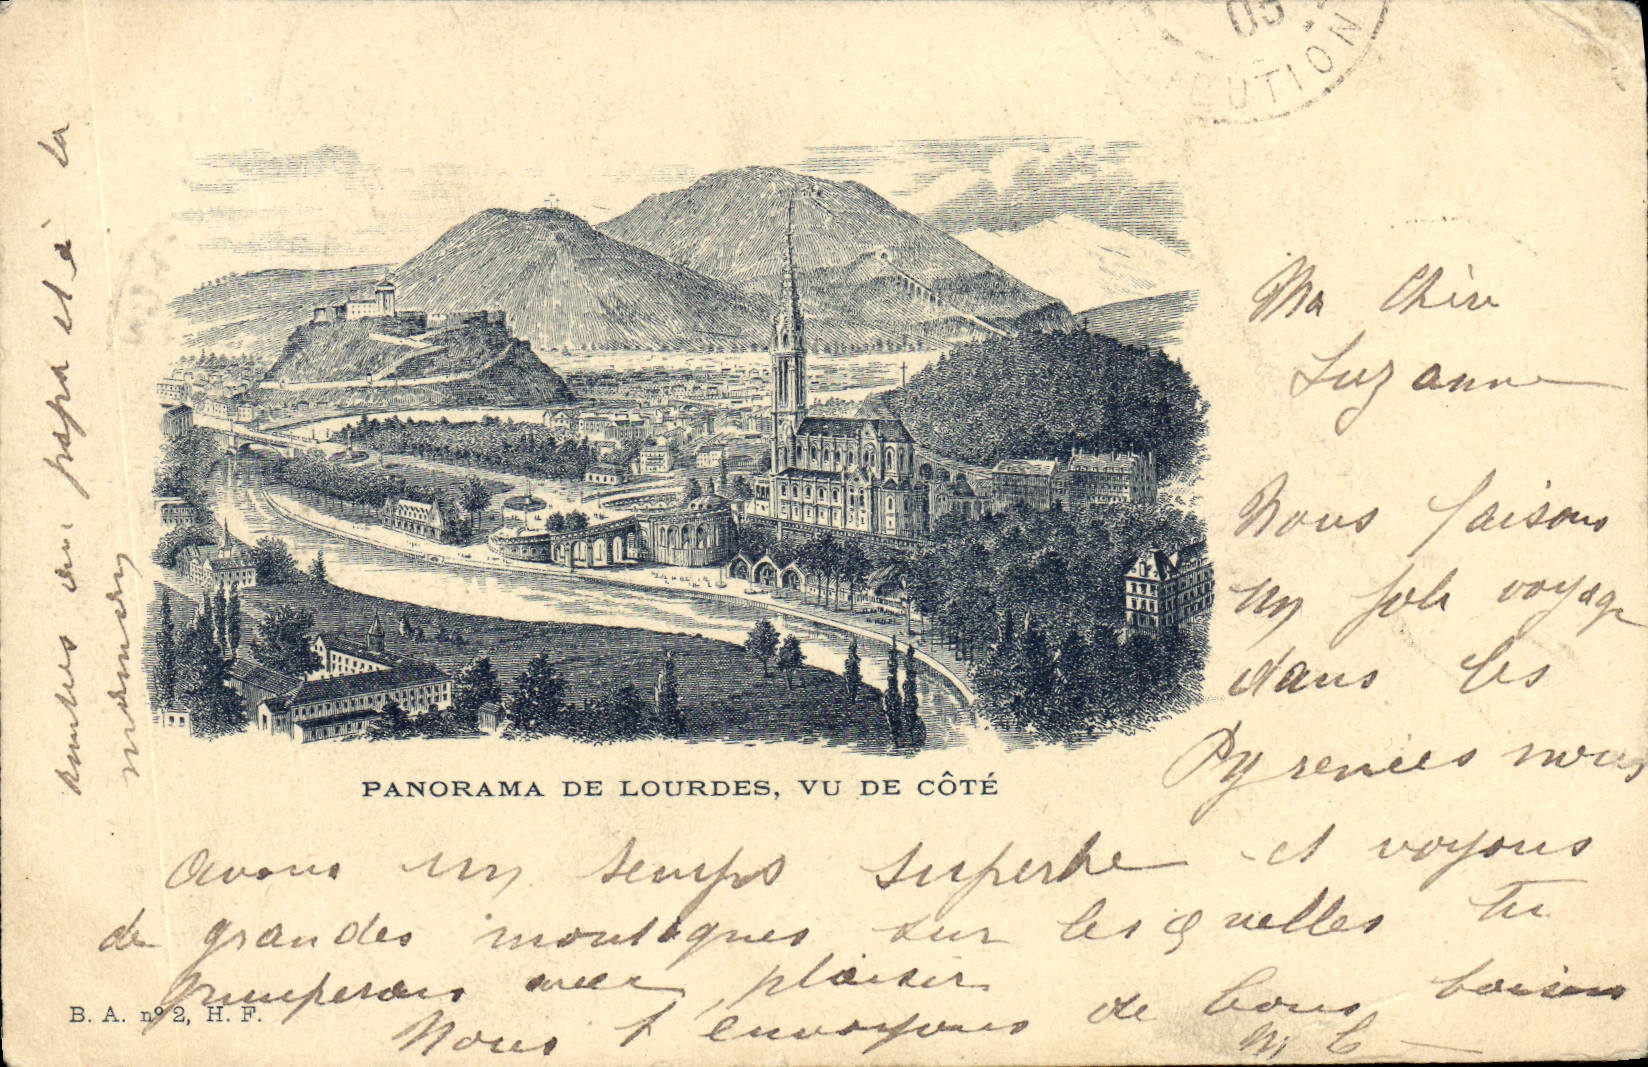 05
UTION
Ma Chère
Suzanne
Nous faisons
un joli voyage
dans les
Pyrenées nous
PANORAMA DE LOURDES, VU DE CÔTÉ
avons un temps superbe et voyons
de grandes montagnes sur lesquelles tu
grimperais avec plaisir
B. A. nº 2, H. F.
Nous t'envoyons de bons baisers
M C
papa et à la
maman